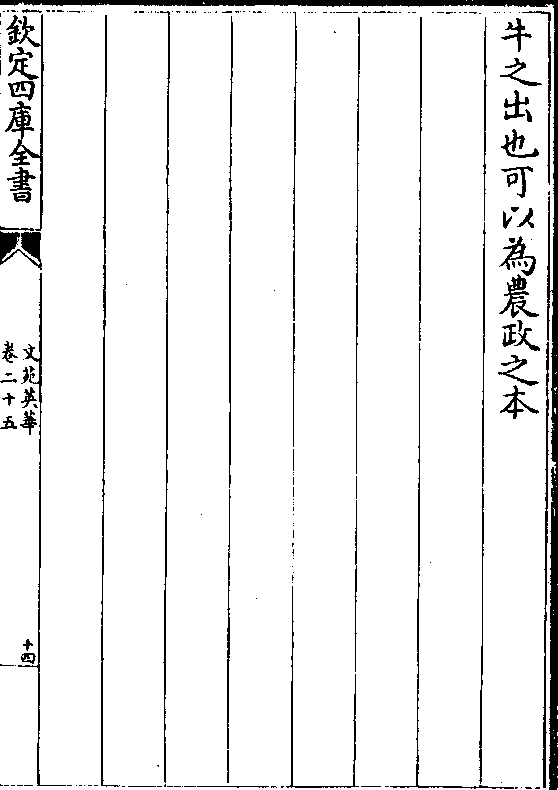 牛之出也可以為農政之本
欽定四庫全書
文苑英華
卷二十五
十四